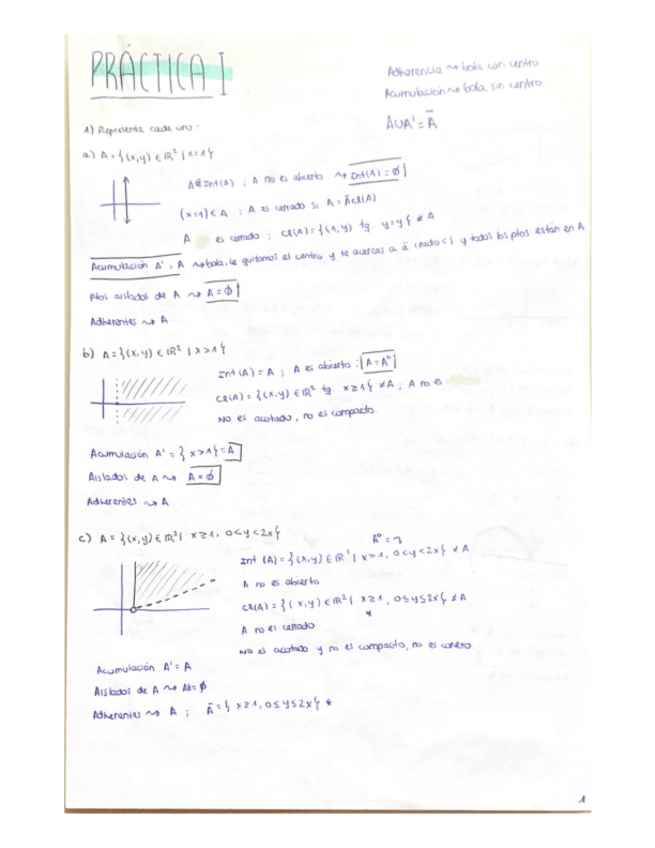 PRÁCTICA I
Adherencia ⇝ bola con centro
Acumulación ⇝ bola sin centro
A∪A' = Ā
1) Representa cada uno:
a) A = {(x,y) ∈ ℝ² | x=1}
A∉Int(A) ; A no es abierto ⇝ Int(A) = ∅
(x=1) ∈ A ; A es cerrado si A = Ā
A es cerrado ; Cl(A) = {(1,y) tq. y=y} A
Acumulación A' = A ⇝ bola, le quitamos el centro y te acercas a y todos los ptos están en A
Ptos aislados de A ⇝ A = ∅
Adherentes ⇝ A
b) A = {(x,y) ∈ ℝ² | x>1}
Int(A) = A ; A es abierto : A = A°
Cl(A) = {(x,y) ∈ ℝ² tq. x≥1} ≠ A ; A no es
No es acotado, no es compacto.
Acumulación A' = { x>1} = A
Aislados de A ⇝ A = ∅
Adherentes ⇝ A
c) A = {(x,y) ∈ ℝ² | x≥1, 0<y<2x}
Int (A) = {(x,y) ∈ ℝ² | x>1, 0<y<2x} ≠ A
A no es abierto
Cl(A) = {(x,y) ∈ ℝ² | x≥1, 0≤y≤2x} ≠ A
*
A no es cerrado
No es acotado y no es compacto, no es
Acumulación A' = A
Aislados de A ⇝ = ∅
Adherentes ⇝ A ; Ā = { x≥1, 0≤y≤2x} *
1